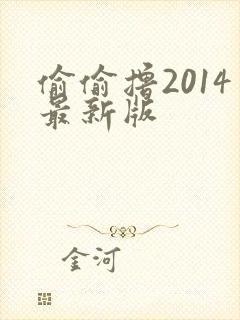 偷偷撸2014
最新版
金河